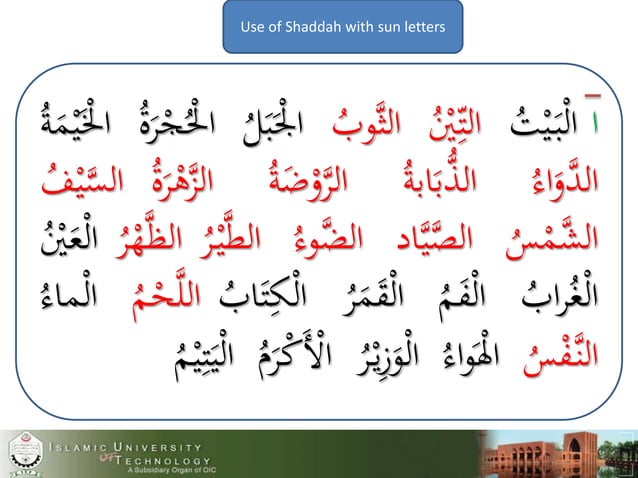 Use of Shaddah with sun letters
ا الْبَيْتُ التِّيْنُ الثَّوبُ الْجَبَلُ الْحُجْرَةُ الْخَيْمَةُ
الدَّوَاءُ الذُّبَابةُ الرَّوْضَةُ الزَّهْرَةُ السَّيْفُ
الشَّمْسُ الصَّيَّاد الضَّوءُ الطَّيْرُ الظَّهْرُ الْعَيْنُ
الْغُرابُ الْفَمُ الْقَمَرُ الْكِتَابُ اللَّحْمُ الْماءُ
النَّفْسُ الْهَواءُ الْوَزِيْرُ الْأَكْرَمُ الْيَتِيْمُ
ISLAMIC UNIVERSITY
OF TECHNOLOGY
A Subsidiary Organ of OIC